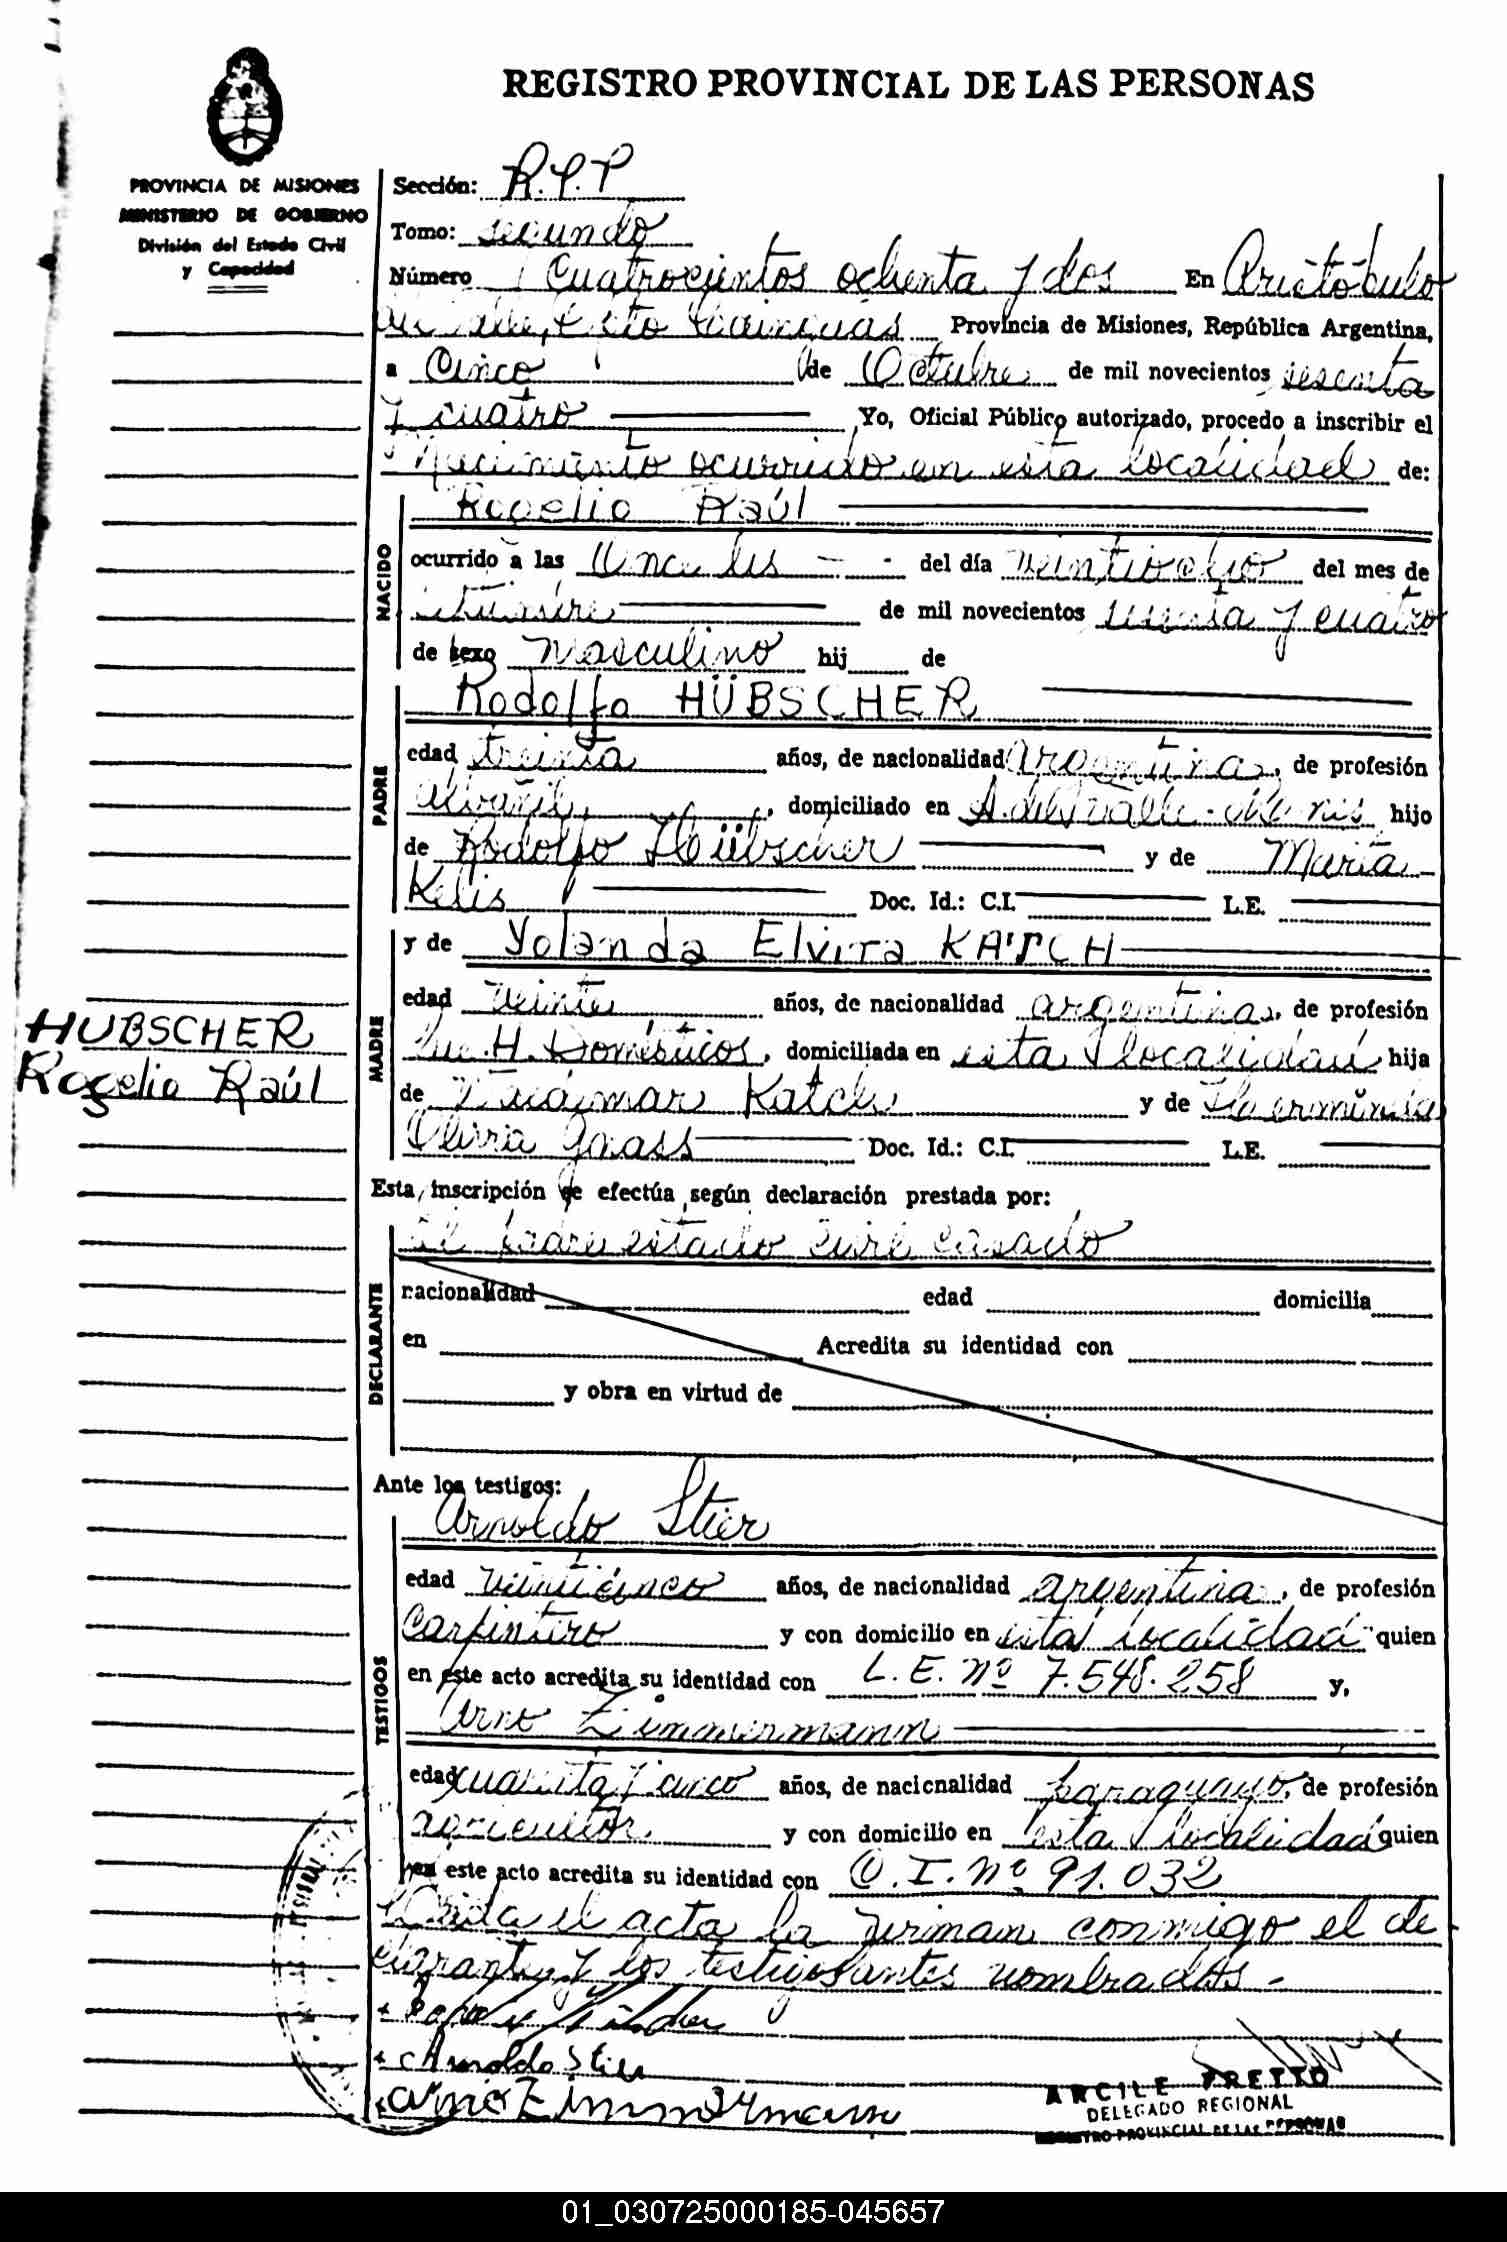 REGISTRO PROVINCIAL DE LAS PERSONAS
PROVINCIA DE MISIONES
MINISTERIO DE GOBIERNO
División del Estado Civil
y Capacidad
Sección: R.P.P
Tomo: segundo
Número Cuatrocientos ochenta y dos En Aristóbulo
del Valle, Dpto Cainguás Provincia de Misiones, República Argentina,
a Cinco de Octubre de mil novecientos sesenta
y cuatro Yo, Oficial Público autorizado, procedo a inscribir el
Nacimiento ocurrido en esta localidad de:
NACIDO
Rogelio Raúl
ocurrido a las Once hs del día veintiocho del mes de
setiembre de mil novecientos sesenta y cuatro
de sexo Masculino hij de
PADRE
Rodolfo HÜBSCHER
edad treinta años, de nacionalidad Argentina, de profesión
albañil, domiciliado en A. del Valle - Mnes hijo
de Rodolfo Hübscher y de María
Kelis Doc. Id.: C.I. L.E.
MADRE
y de Yolanda Elvira KATCH
edad veinte años, de nacionalidad argentina, de profesión
Que. H. Domésticos, domiciliada en esta localidad hija
de Katch y de Herminia
Olivia Gnass Doc. Id.: C.I. L.E.
HUBSCHER
Rogelio Raúl
Esta inscripción se efectúa según declaración prestada por:
DECLARANTE
El padre estado civil casado
nacionalidad edad domicilia
en Acredita su identidad con
y obra en virtud de
Ante los testigos:
TESTIGOS
Arnoldo Stier
edad veinticinco años, de nacionalidad argentina, de profesión
Carpintero y con domicilio en esta localidad quien
en este acto acredita su identidad con L.E. Nº 7.548.258 y,
Arno Zimmermann
edad cuarenta y cinco años, de nacionalidad paraguayo, de profesión
agricultor y con domicilio en esta localidad quien
en este acto acredita su identidad con C.I. Nº 91.032
Leída el acta la firman conmigo el de
clarante y los testigos antes nombrados.-
Arnoldo Stier
Arno Zimmermann
ARCILE PRETTO
DELEGADO REGIONAL
REGISTRO PROVINCIAL DE LAS PERSONAS
01_030725000185-045657